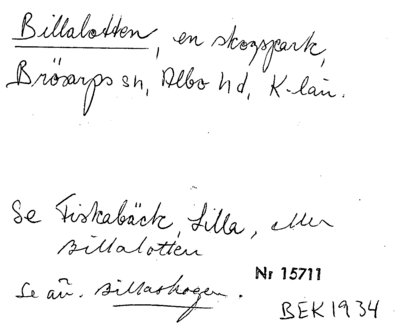 Billalotten, en skogspark,
Brösarps sn, Albo hd, K-län.
Se Fiskabäck, Lilla, eller
Billalotten
Se äv. Billaskogen.
Nr 15711
BEK 1934